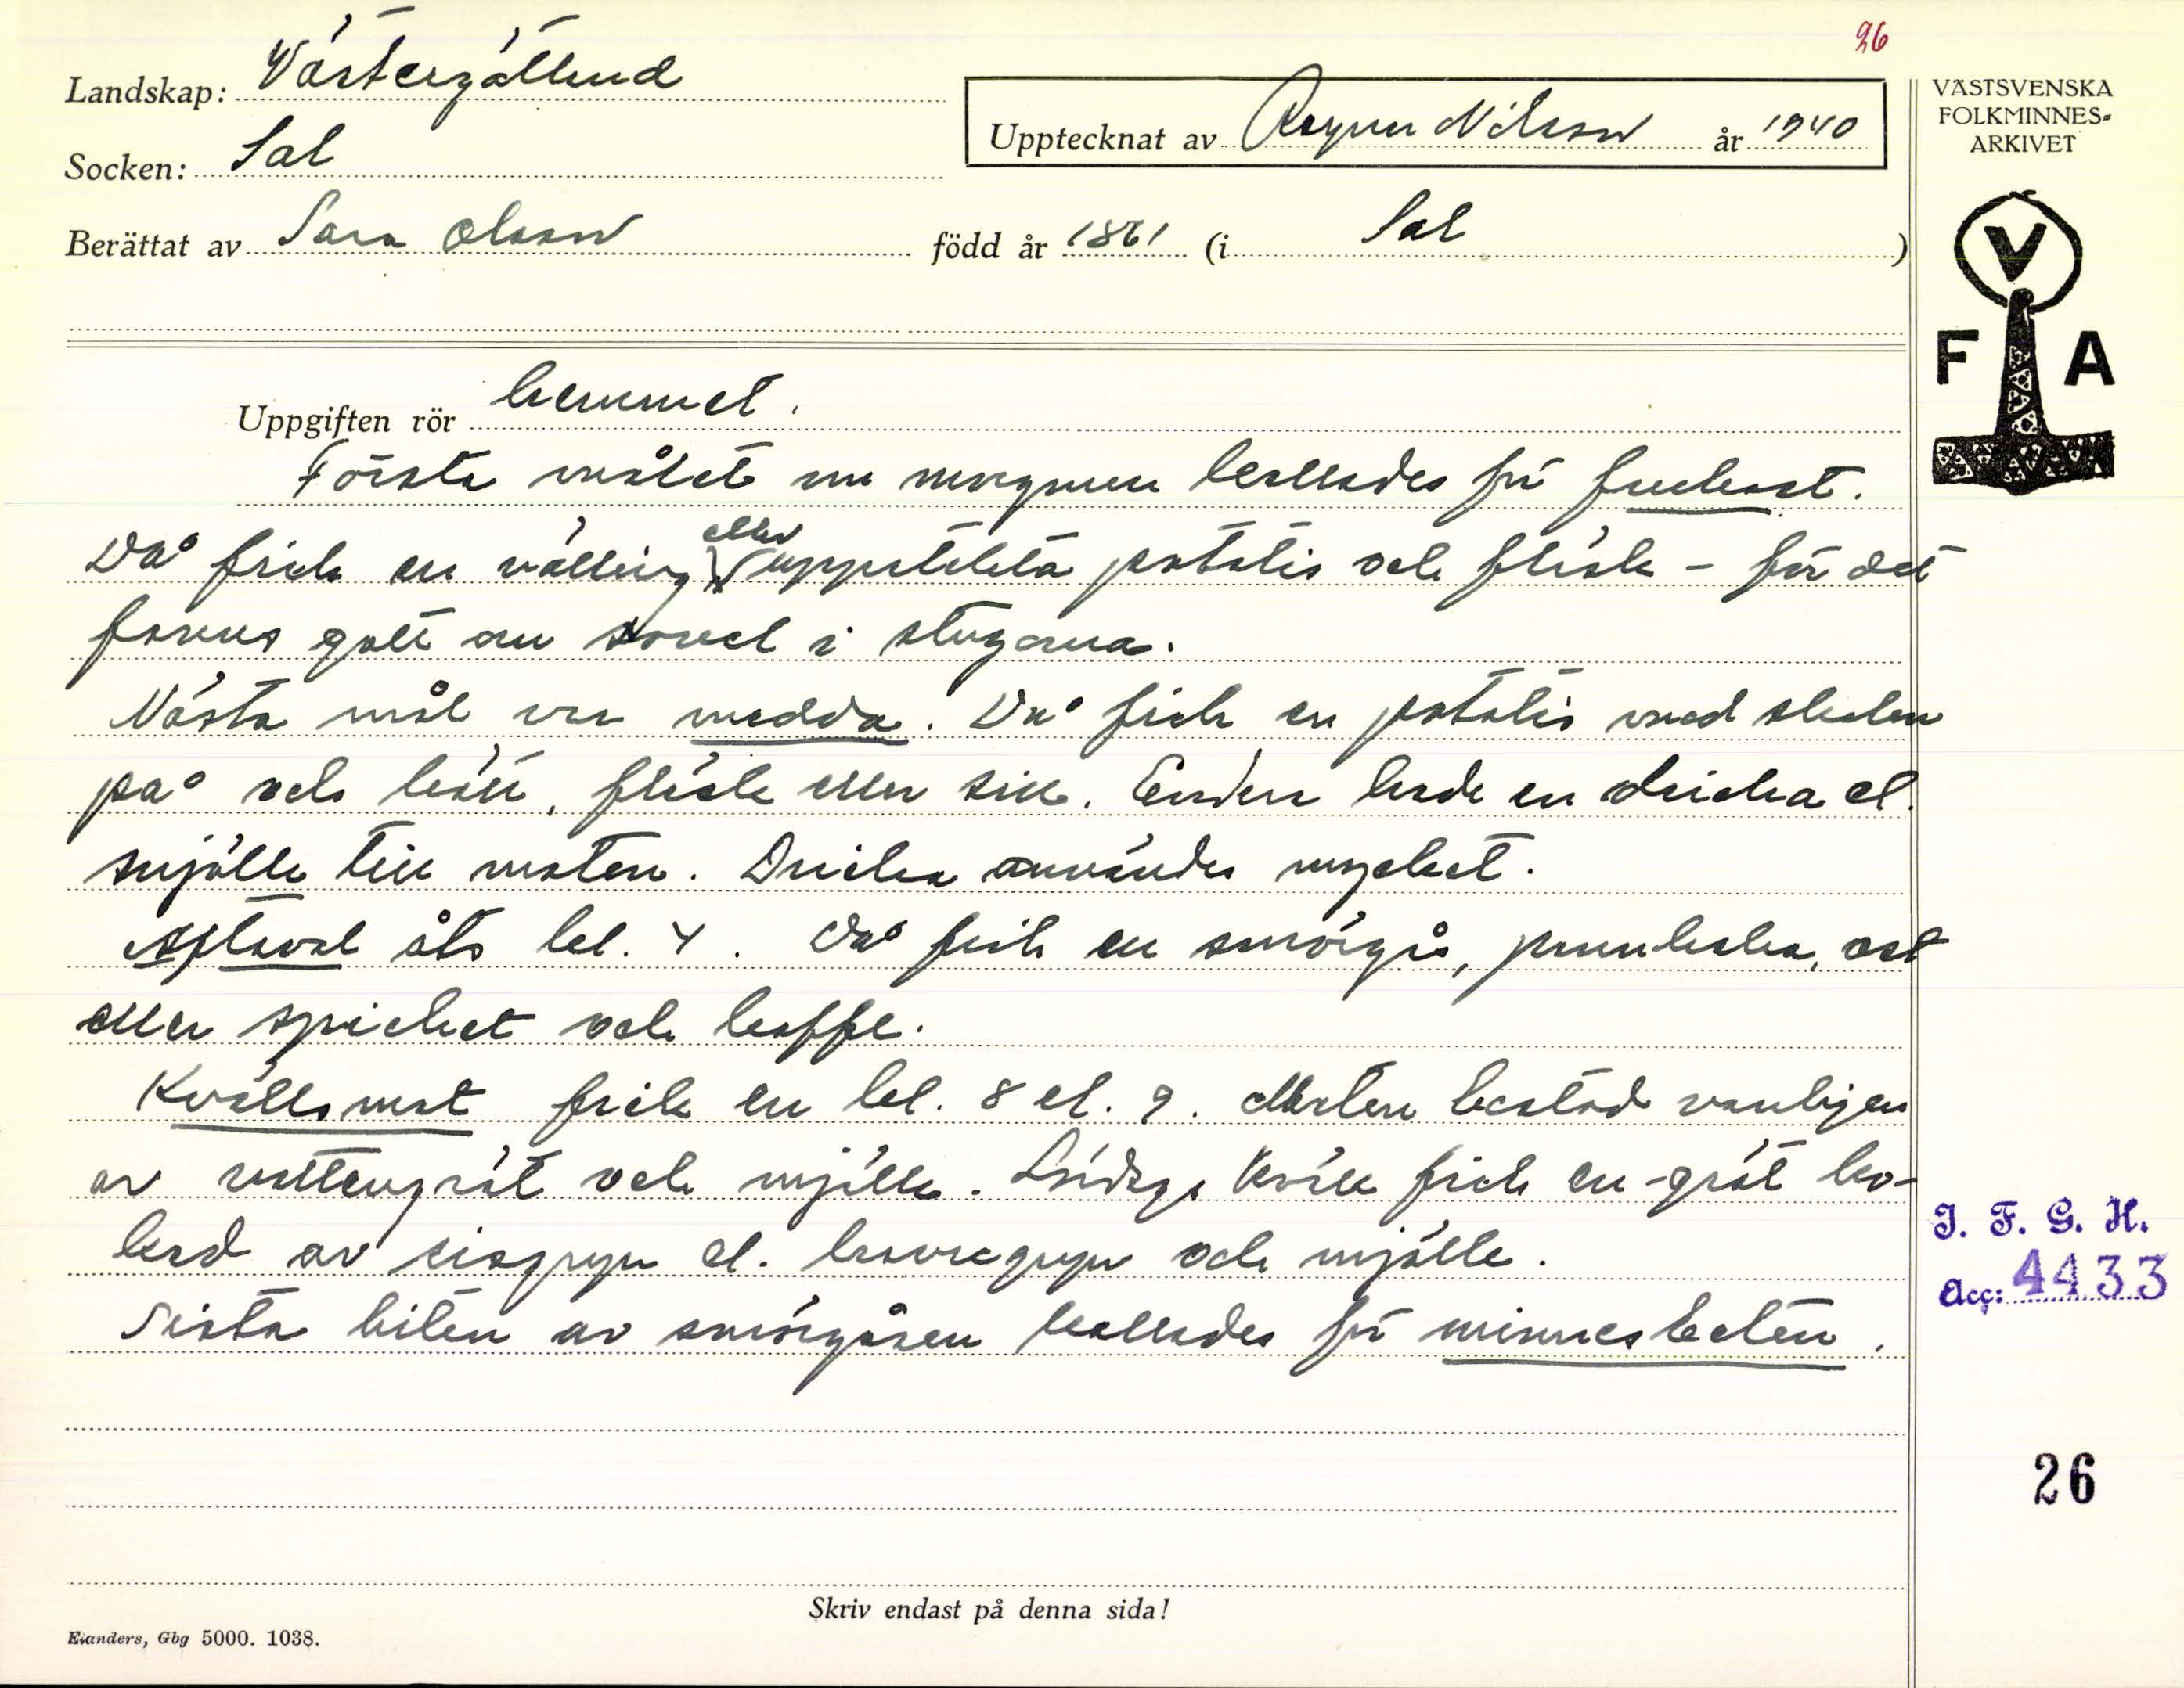 26
Landskap: Västergötland
Upptecknat av Ragnar Nilsson år 1940
Socken: Sal
Berättat av Sara Olsson född år 1861 (i Sal)
VÄSTSVENSKA
FOLKMINNES-
ARKIVET
V
F A
Uppgiften rör hemmet.
Första målet om morgonen kallades för frukost.
Då fick en välling eller uppstekta potatis och fläsk - för det
fanns gott om sovel i stugorna.
Nästa mål var medda. Då fick en potatis med skalen
på och kött, fläsk eller sill. Endera hade en dricka el.
mjölk till maten. Dricka användes mycket.
Aftaval åts kl. 4. Då fick en smörgås, pannkaka, ost
eller spicket och kaffe.
Kvällsmat fick en kl. 8 el. 9. Maten bestod vanligen
av vattengröt och mjölk. Lördags kväll fick en gröt ko-
kad av risgryn el. havregryn och mjölk.
Sista biten av smörgåsen kallades för minnesbeten.
I. F. G. H.
Acc: 4433
26
Skriv endast på denna sida!
Elanders, Gbg 5000. 1038.